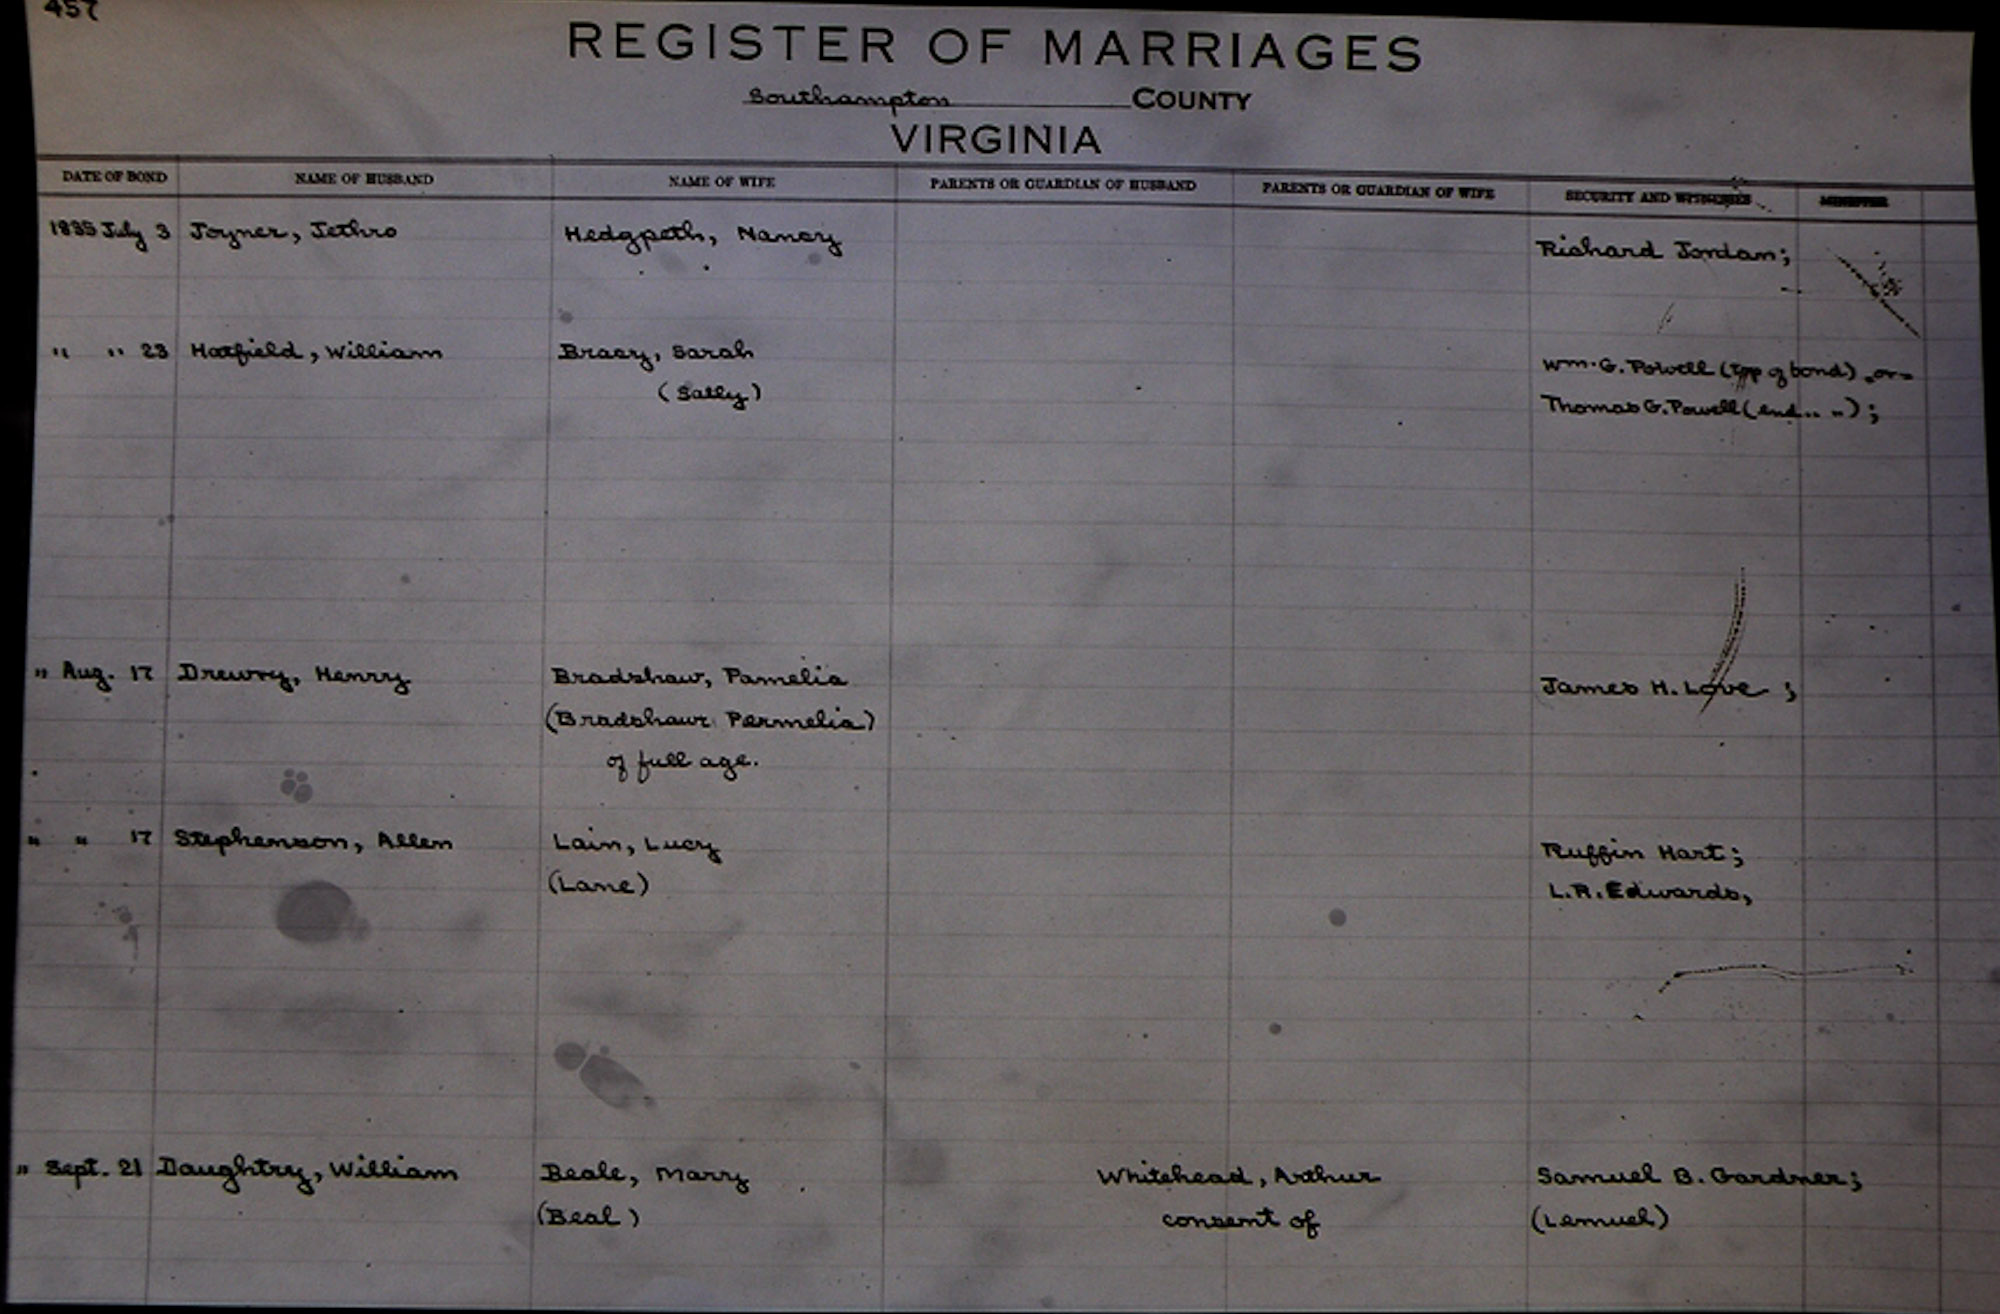 457
REGISTER OF MARRIAGES
Southampton COUNTY
VIRGINIA
DATE OF BOND NAME OF HUSBAND NAME OF WIFE PARENTS OR GUARDIAN OF HUSBAND PARENTS OR GUARDIAN OF WIFE SECURITY AND WITNESSES MINISTER
1835 July 3 Joyner, Jethro Hedgpeth, Nancy Richard Jordan;
" " 23 Hatfield, William Bracy, Sarah Wm. G. Powell (top of bond) -or-
(Sally) Thomas G. Powell (end " ");
" Aug. 17 Drewry, Henry Bradshaw, Pamelia James H. Love ;
(Bradshaw Permelia)
of full age.
" " 17 Stephenson, Allen Lain, Lucy Ruffin Hart;
(Lane) L.R. Edwards,
" Sept. 21 Daughtry, William Beale, Marry Whitehead, Arthur Samuel B. Gardner;
(Beal) consent of (Lemuel)